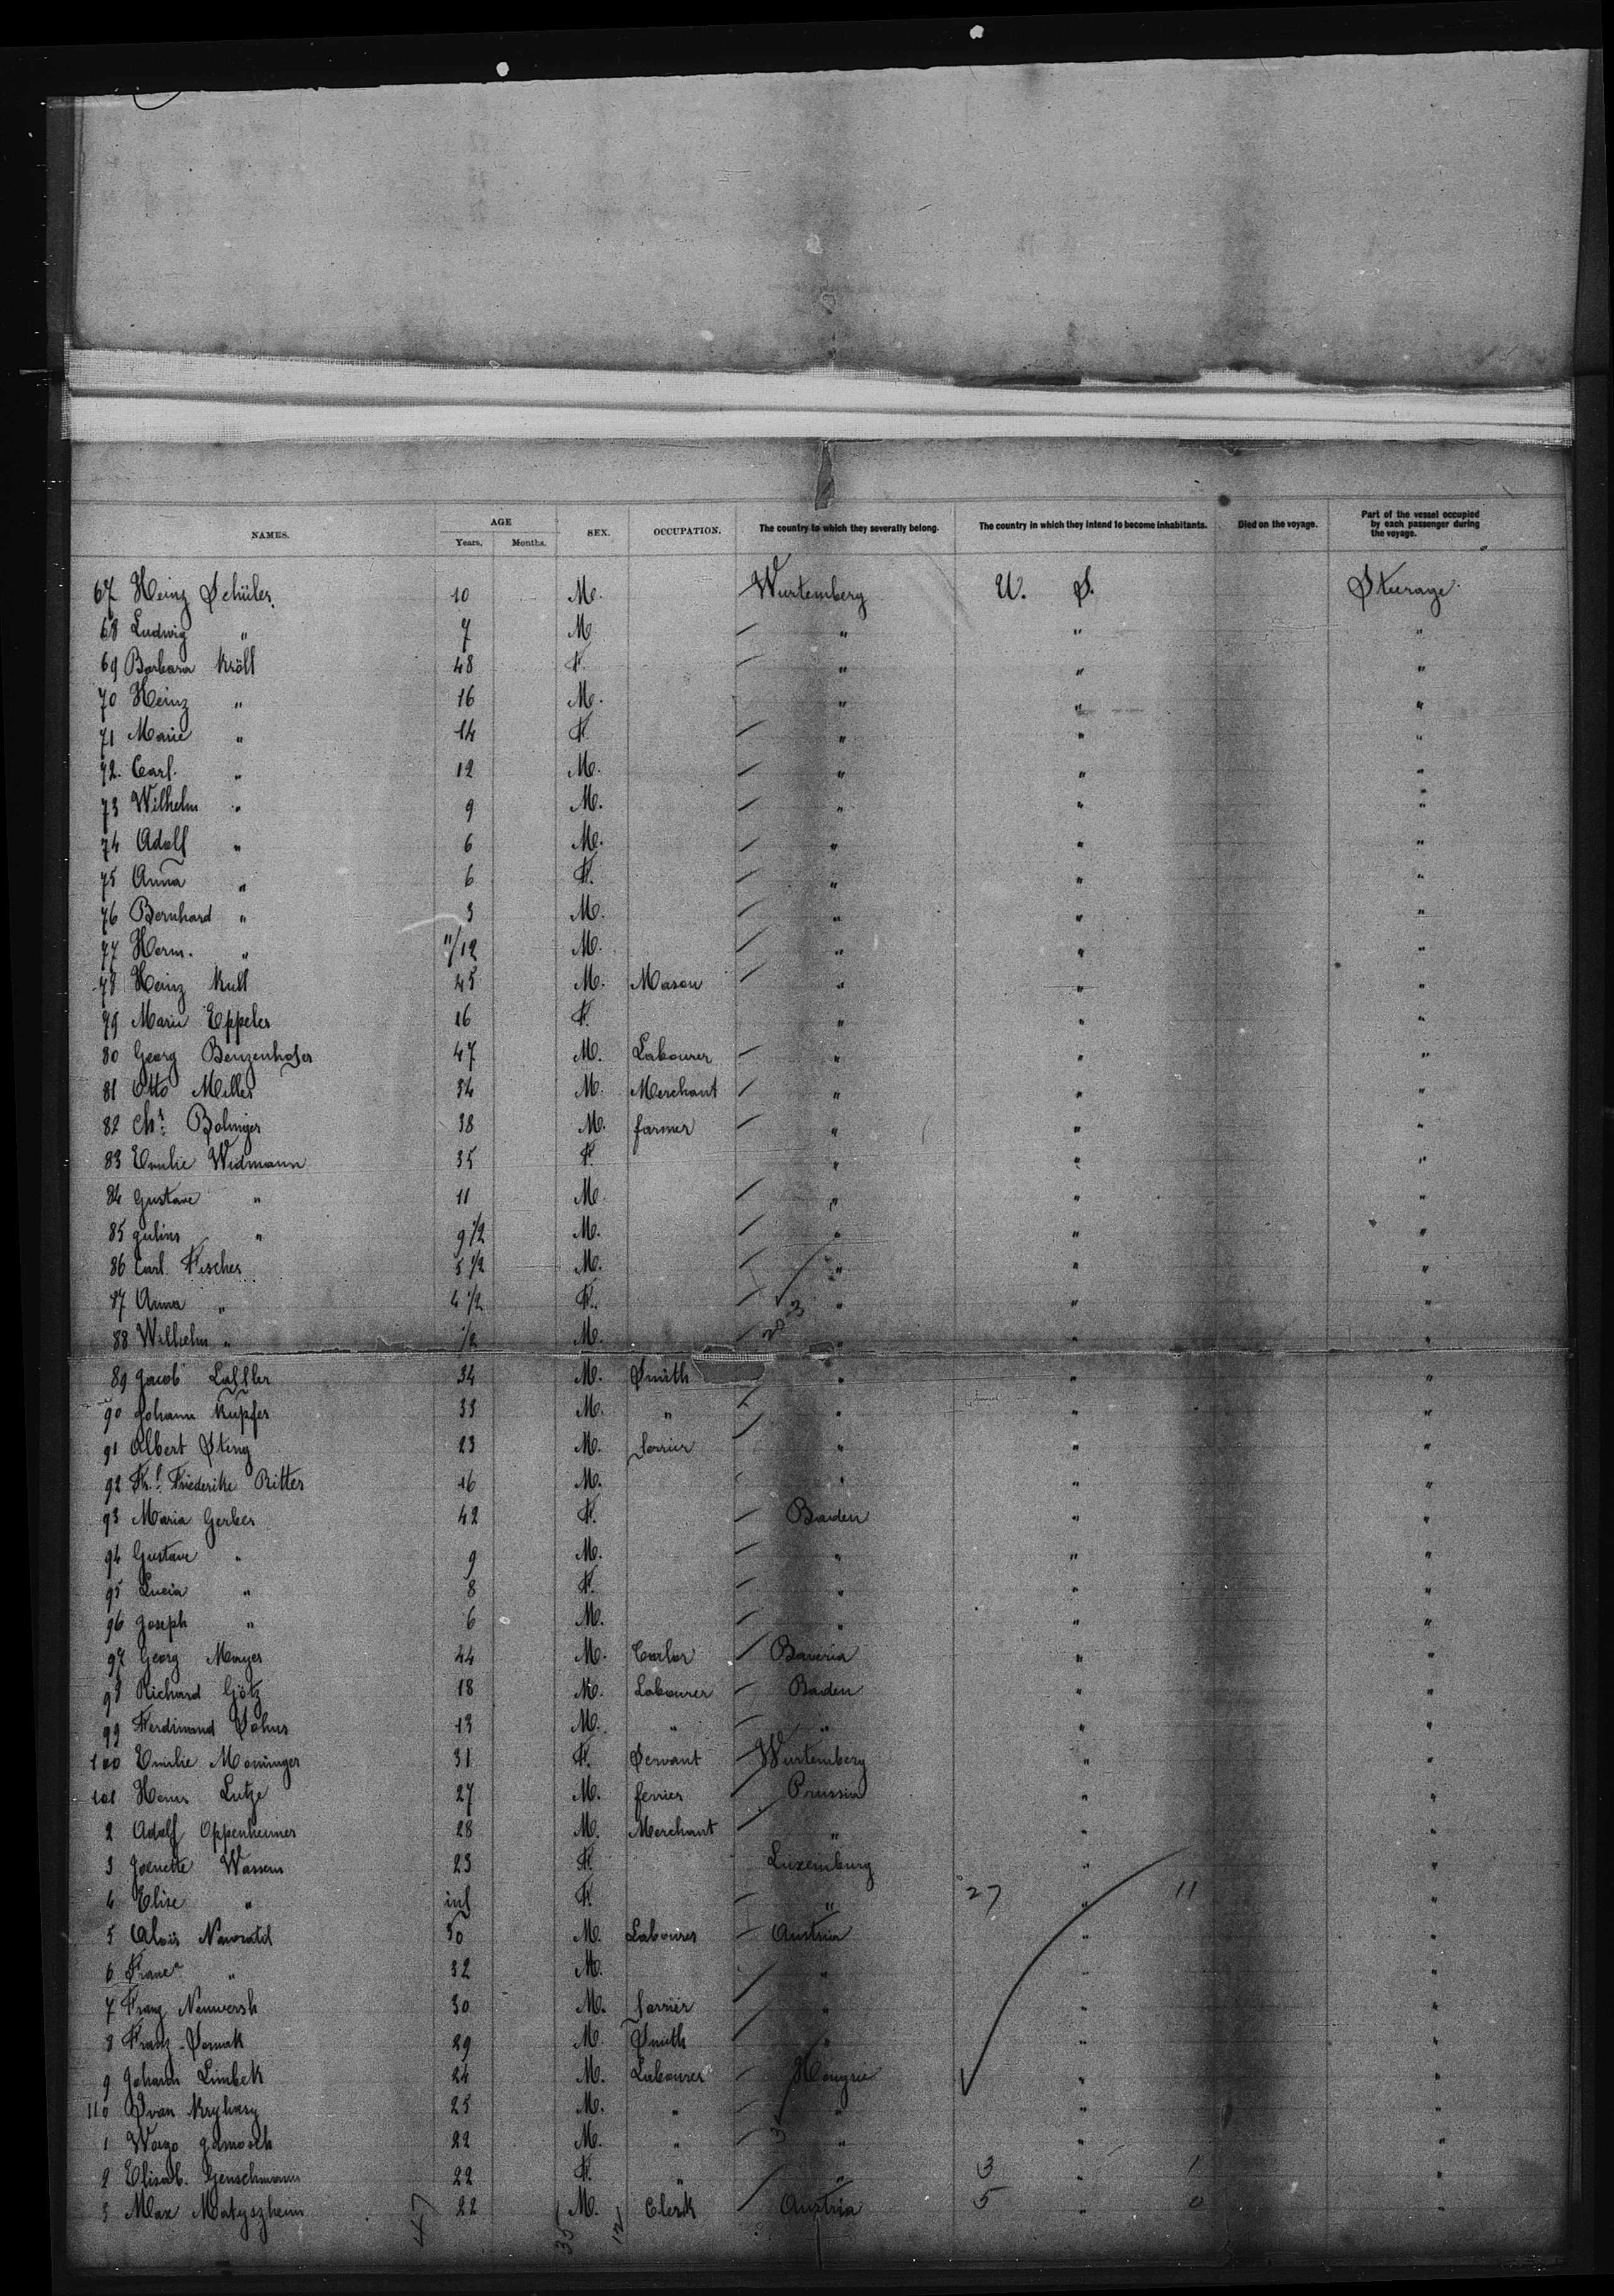 NAMES. AGE SEX. OCCUPATION. The country to which they severally belong. The country in which they intend to become inhabitants. Died on the voyage. Part of the vessel occupied by each passenger during the voyage.
Years. Months.
67 Heinz Schüler 10 M. Wurtemberg U. S. Steerage
68 Ludwig " 7 M " " "
69 Barbara Kröll 48 F. " " "
70 Heinz " 16 M. " " "
71 Marie " 14 F. " " "
72. Carl. " 12 M. " " "
73 Wilhelm " 9 M. " " "
74 Adolf " 6 M. " " "
75 Anna " 6 F. " " "
76 Bernhard " 3 M. " " "
77 Herm. " 11/12 M. " " "
78 Heinz Kull 45 M. Mason " " "
79 Marie Eppeler 16 F. " " "
80 Georg Benzenhofer 47 M. Labourer " " "
81 Otto Miller 34 M. Merchant " " "
82 Chr: Bolinger 38 M. farmer " " "
83 Emilie Widmann 35 F. " " "
84 Gustave " 11 M. " " "
85 Julius " 9 1/2 M. " " "
86 Carl Fischer 5 1/2 M. " " "
87 Anna " 4 1/2 F. " " "
88 Wilhelm " 1/2 M. " " "
89 Jacob Laffler 34 M. Smith " " "
90 Johann Kupfer 33 M. " " " "
91 Albert Steng 23 M. " " "
92 Friederike Ritter 16 M. " " "
93 Maria Gerber 42 F. Baden " "
94 Gustave " 9 M. " " "
95 Lucia " 8 F. " " "
96 Joseph " 6 M. " " "
97 Georg Mayer 44 M. Bavaria " "
98 Richard Götz 18 M. Labourer Baden " "
99 Ferdinand 13 M. " " " "
100 Emilie Moninger 31 F. Servant Wurtemberg " "
101 Lutze 27 M. Prussia " "
2 Adolf Oppenheimer 28 M. Merchant " " "
3 Wassem 23 F. Luxemburg " "
4 Elise " inf F. " 27 " 11 "
5 Alois 30 M. Labourer Austria " "
6 " 32 M. " " "
7 Franz 30 M. " " "
8 Franz 29 M. Smith " " "
9 Johann Limbek 24 M. Labourer Hongrie " "
110 25 M. " " " "
1 22 M. " " " "
2 Elisab. Genschmann 22 F. " " 3 " 1 "
3 Max 22 M. Clerk Austria 5 " 0 "
47 35 12